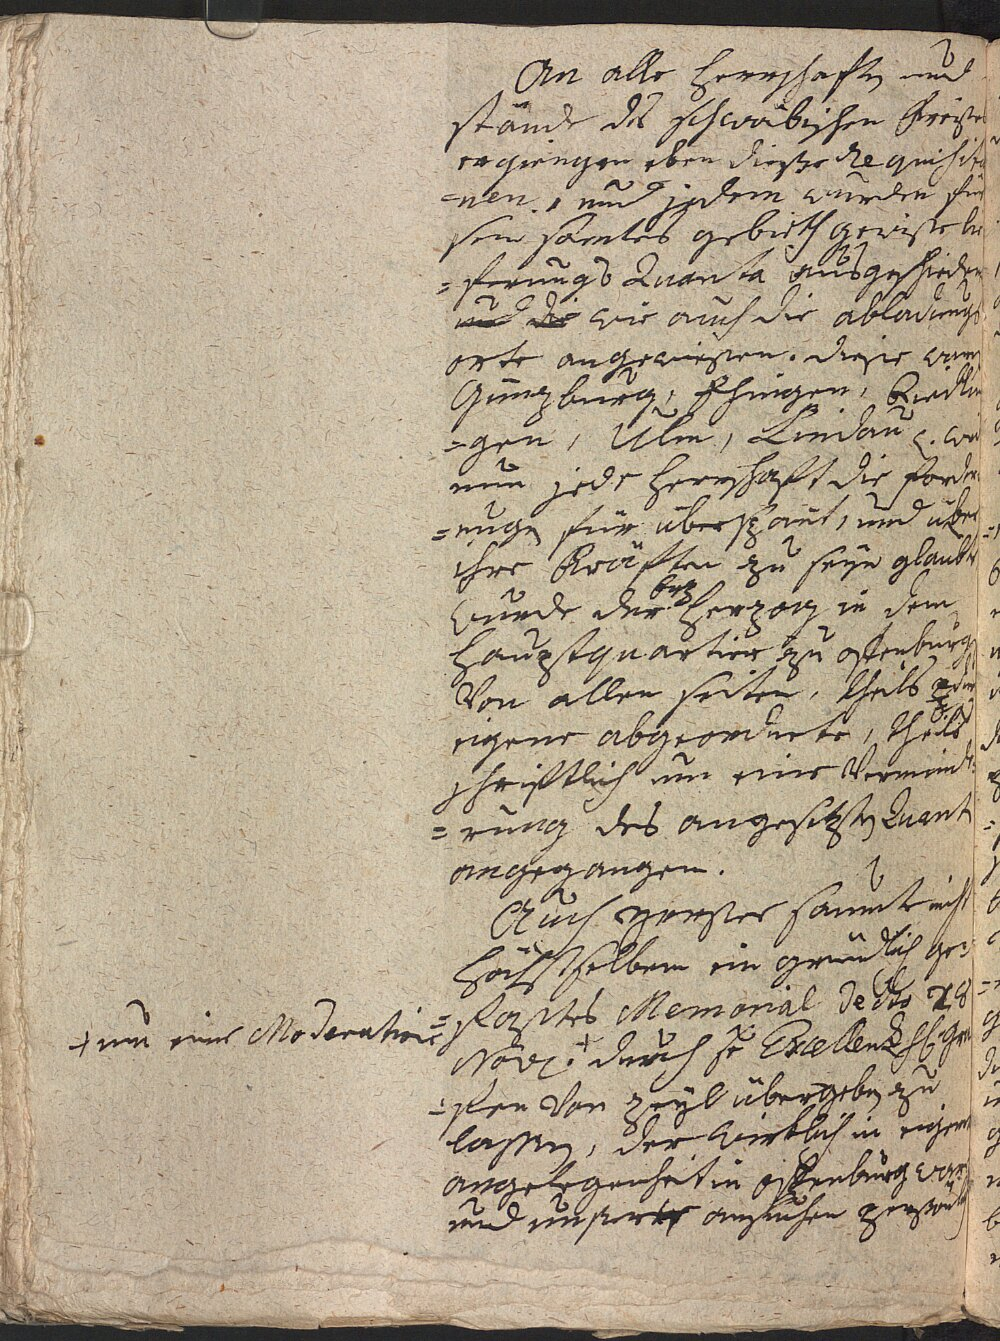 An alle Herrschaften und
stände des schwäbischen Kreißes
ergiengen eben dieße Requisitio
=nen, und jedem wurden für
sein samtes gebieth gewiße lie
=ferungs Quanta ausgeschieden
und die wie auch die abladungs
orte angewießen. diese waren
Günzburg, Ehingen, Riedlin
=gen, Ulm, Lindau
nun jede Herrschaft die forder
=ungen für überspant, und über
ihre Kräften zu seyn glaubte
wurde der Erz Herzog in dem
Hauptquartier zu offenburg
Von allen seiten, theils durch
eigene abgeordnete, theils
schriftlich um eine Vermind
=rung des angesetzten Quanti
angegangen.
Auch unser säumte nicht
höchstselbem ein gründlich ge=
=faßtes Memorial de dto 28
+um eine Moderation
Növ. + durch Sr Excellenz H. Gra
=fen Von Zeyl übergeben zu
lassen, der wirklich in eigener
angelegenheit in offenburg war
und unser ansuchen persönlich